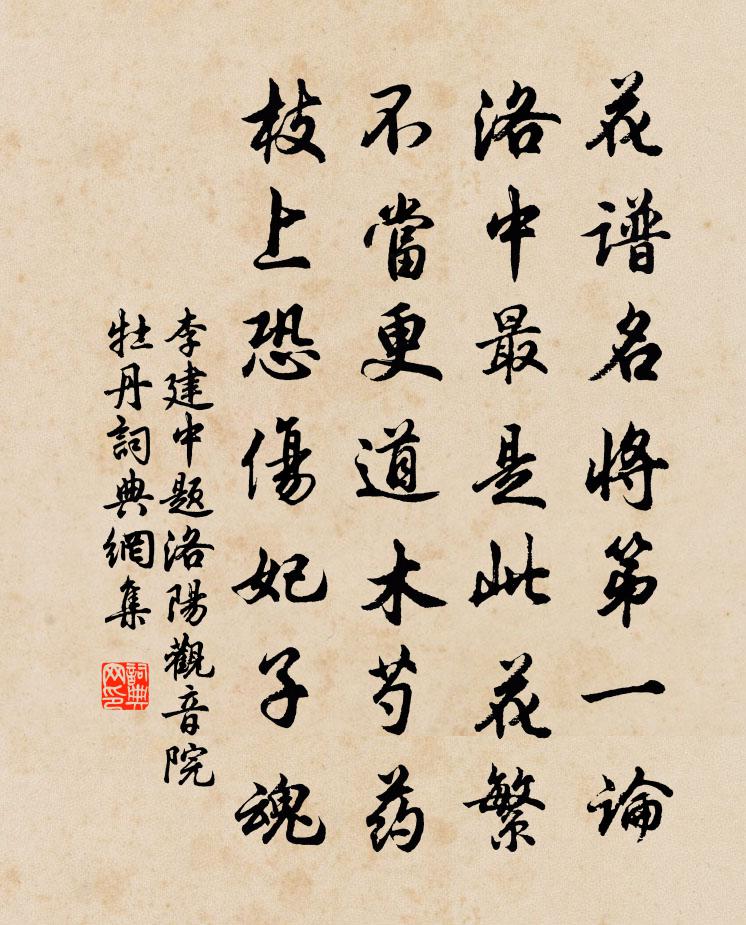 花谱名将第一論
洛中最是此花繁
不當更道木芍药
枝上恐傷妃子魂
李建中题洛陽觀音院
牡丹詞典網集
詞典网印